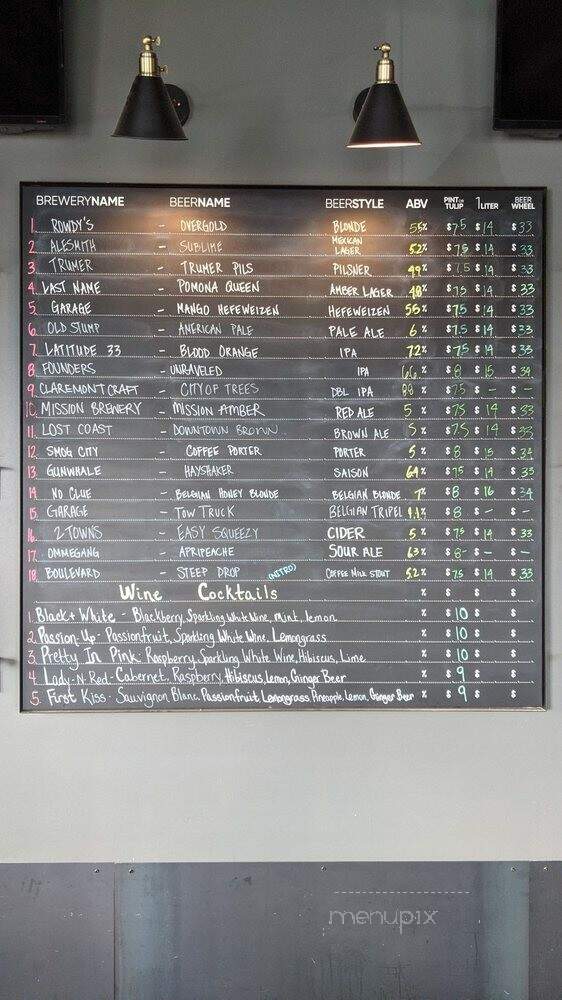 BREWERYNAME BEERNAME BEERSTYLE ABV PINT OR TULIP 1 LITER BEER WHEEL
1. ROWDY'S - OVERGOLD BLONDE 5.5% $7.5 $14 $33
2 ALESMITH - SUBLIME MEXICAN LAGER 5.2% $7.5 $14 $33
3. TRUMER - TRUMER PILS PILSNER 4.9% $7.5 $14 $33
4. LAST NAME - POMONA QUEEN AMBER LAGER $7.5 $14 $33
5 GARAGE - MANGO HEFEWEIZEN HEFEWEIZEN 5.5% $7.5 $14 $33
6. OLD STUMP - AMERICAN PALE PALE ALE 6% $7.5 $14 $33
7. LATITUDE 33 - BLOOD ORANGE IPA 7.2% $7.5 $14 $33
8 FOUNDERS - UNRAVELED IPA 6.6% $8 $15 $34
9. CLAREMONT CRAFT - CITY OF TREES DBL IPA $7.5 $- $-
10. MISSION BREWERY - MISSION AMBER RED ALE 5% $7.5 $14 $33
11. LOST COAST - DOWNTOWN BROWN BROWN ALE 5% $7.5 $14 $33
12. SMOG CITY - COFFEE PORTER PORTER 5% $8 $15 $34
13. GUNWHALE - HAYSHAKER SAISON 6.4% $7.5 $14 $33
14 NO CLUE - BELGIAN HONEY BLONDE BELGIAN BLONDE 7% $8 $16 $34
15. GARAGE - TOW TRUCK BELGIAN TRIPEL $8 $- $-
16. 2 TOWNS - EASY SQUEEZY CIDER 5% $7.5 $14 $33
17. OMMEGANG - APRIPEACHE SOUR ALE 6.3% $8- $- $-
18. BOULEVARD - STEEP DROP (NITRO) COFFEE MILK STOUT 5.2% $7.5 $14 $33
Wine Cocktails % $ $ $
1. Black + White - Blackberry, Sparkling White Wine, mint, lemon % $10 $ $
2. Passion Up - Passionfruit, Sparkling White Wine, Lemongrass % $10 $ $
3. Pretty In Pink- Raspberry, Sparkling White Wine, Hibiscus, Lime % $10 $ $
4. Lady-N-Red- Cabernet, Raspberry, Hibiscus, Lemon, Ginger Beer % $9 $ $
5. First Kiss - Sauvignon Blanc Passionfruit, Lemongrass Pineapple, Lemon, Ginger Beer % $9 $ $
menupix